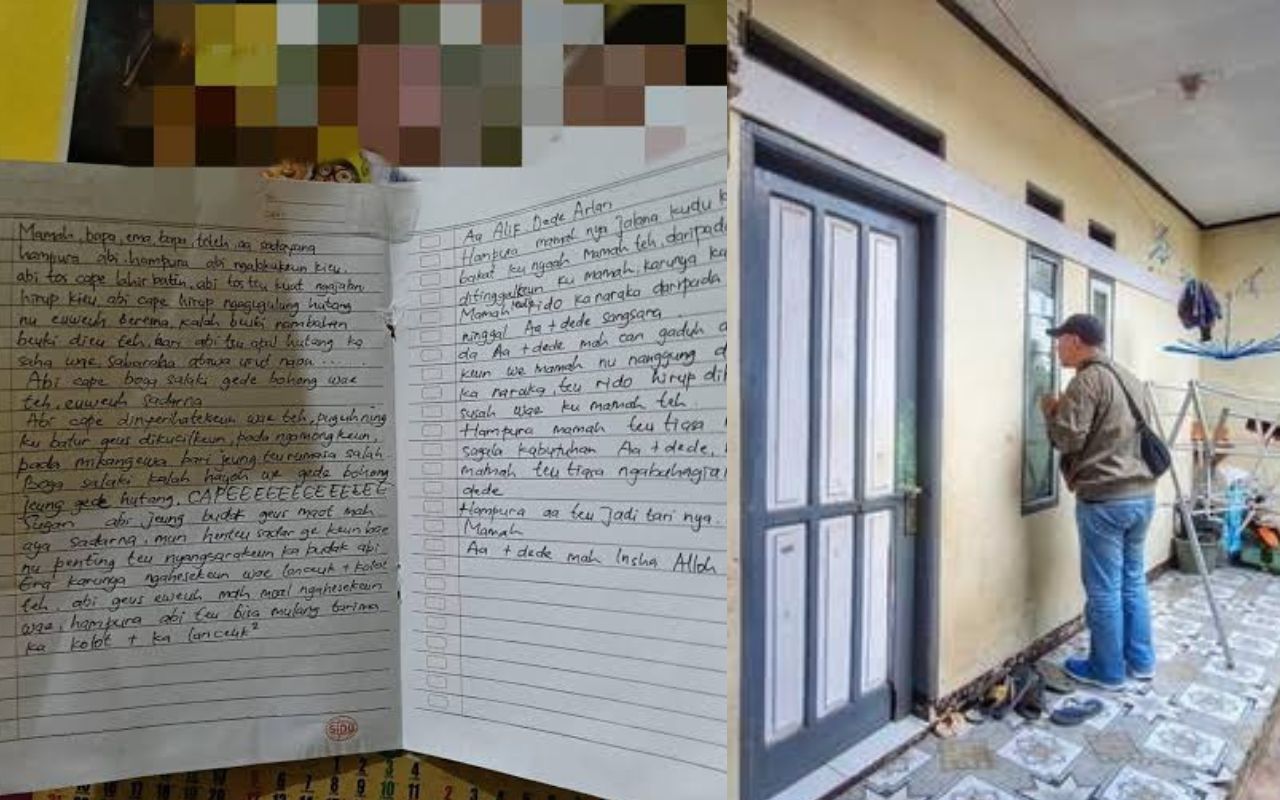 Mamah, bapa, ema, bapa, teteh, aa sadayana
hampura abi, hampura abi ngalakukeun kieu.
abi tos cape lahir batin, abi tos teu kuat ngajalani
hirup kieu, abi cape hirup ngagugulung hutang
nu euweuh beresna, kalah beuki nambahan
beuki dieu teh, bari abi teu apal hutang ka
saha wae, sabaraha
Abi cape boga salaki gede bohong wae
teh, euweuh sadarna
Abi cape dinyerihatekeun wae teh, puguh ning
ku batur geus dikucilkeun, pada ngomongkeun,
pada mikangewa bari jeung teu rumasa salah.
Boga salaki kalah hayoh we gede bohong
jeung gede hutang, CAPEEEEEEEEEEEEE
Sugan abi jeung budak geus maot mah
aya sadarna, mun henteu sadar ge keun bae
nu penting teu nyangsarakeun ka budak abi
Era karunya ngahesekeun wae lanceuk + kolot
teh, abi geus euweuh mah moal ngahesekeun
wae, hampura abi teu bisa mulang tarima
ka kolot + ka lanceuk²
SIDU
Aa Alif Dede Arlan
Hampura mamah nya jalana kudu
bakat ku nyaah Mamah teh, daripada
ditinggalkeun ku mamah, karunya
Mamah rido ka naraka daripada
ninggal Aa + dede sangsara
da Aa + dede mah can gaduh
keun we mamah nu nanggung
ka naraka, teu rido hirup
susah wae ku mamah teh.
Hampura mamah teu tiasa
sagala kabutuhan Aa + dede,
mamah teu tiasa
dede
Hampura aa teu jadi tari nya..
Mamah
Aa + dede mah Insha Alloh
1 2 3 4
6 7 8 9 10 11